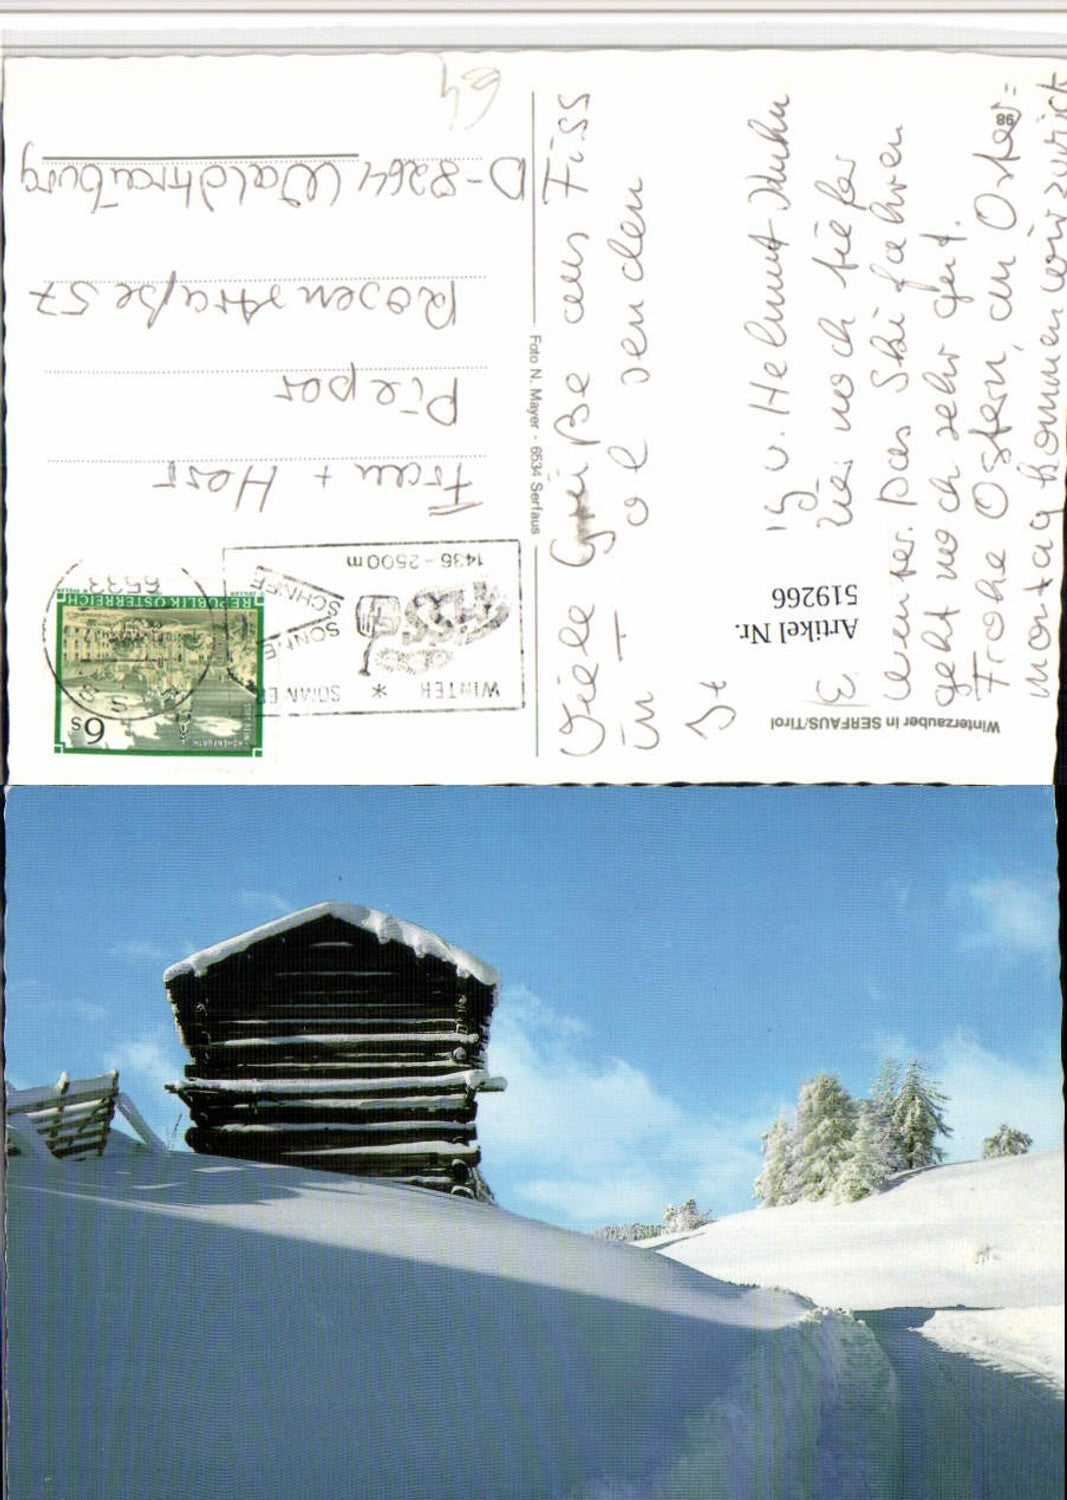 Winterzauber in SERFAUS/Tirol
98
Foto N. Mayer - 6534 Serfaus
Artikel Nr.
519266
Viele Grüße aus Fiss
in T
ol senden
v. Helmut Kuhn
hier noch tiefer
Winter. Das Ski fahren
geht noch sehr gut.
Frohe Ostern, am Oster=
montag kommen wir zurück
WINTER * SOMMER
FISS
SONNE
SCHNEE
1436 - 2500 m
6533
REPUBLIK ÖSTERREICH
6 S
HOHENFURTH
Frau + Herr
Pieper
Rosenstraße 57
D-8264 Waldkraiburg
64